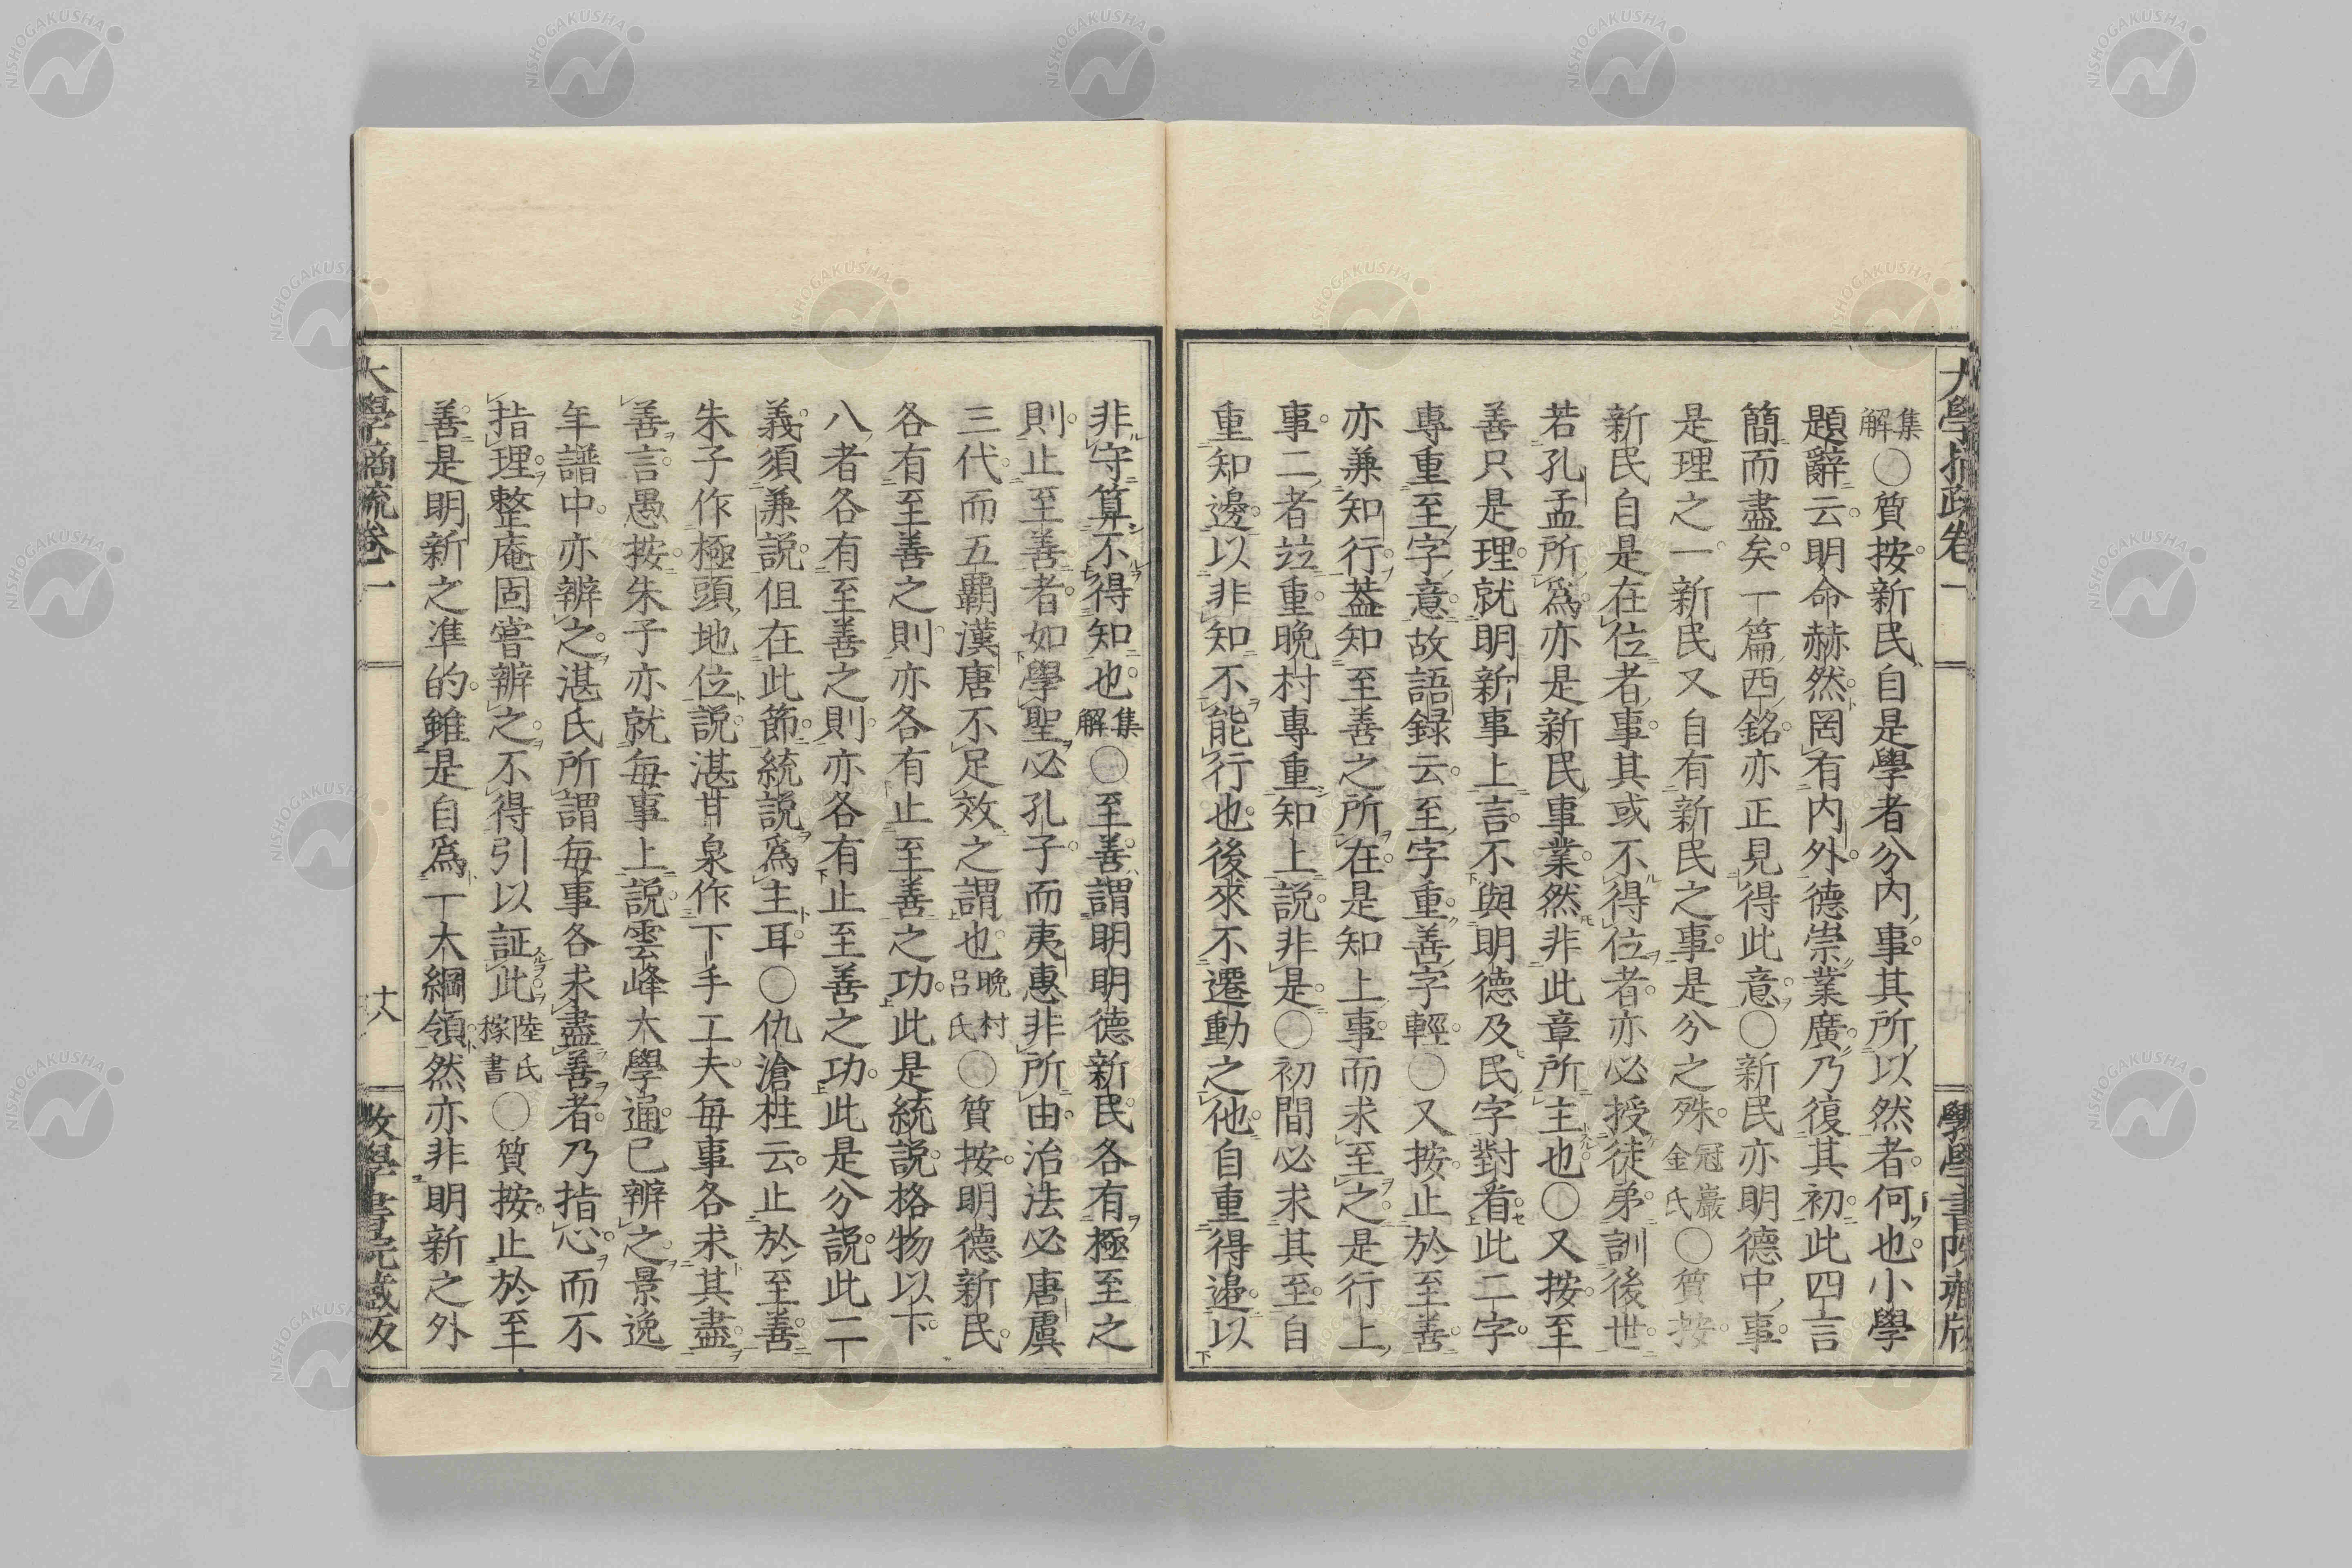 集解〇質按新民自是學者分内事其所以然者何也小學
題辭云明命赫然罔有内外德崇業廣乃復其初此四言
簡而盡矣一篇西銘亦正見得此意〇新民亦明德中事
是理之一新民又自有新民之事是分之殊冠巖金氏〇質按
新民自是在位者事其或不得位者亦必授徒弟訓後世
若孔孟所爲亦是新民事業然非此章所主也〇又按至
善只是理就明新事上言不與明德及民字對看此二字
專重至字意故語録云至字重善字輕〇又按止於至善
亦兼知行蓋知至善之所在是知上事而求至之是行上
事二者竝重晚村專重知上説非是〇初間必求其至自
重知邊以非知不能行也後來不遷動之他自重得邊以
非守算不得知也集解〇至善謂明明德新民各有極至之
則止至善者如學聖必孔子而夷惠非所由治法必唐虞
三代而五覇漢唐不足效之謂也晚村呂氏〇質按明德新民
各有至善之則亦各有止至善之功此是統説格物以下
八者各有至善之則亦各有止至善之功此是分説此二
義須兼説但在此節統説爲主耳〇仇滄柱云止於至善
朱子作極頭地位説湛甘泉作下手工夫每事各求其盡
善言愚按朱子亦就每事上説雲峰大學通已辨之景逸
年譜中亦辨之湛氏所謂每事各求盡善者乃指心而不
指理整庵固嘗辨之不得引以証此陸氏稼書〇質按止於至
善是明新之準的雖是自爲一大綱領然亦非明新之外
大學摘疏卷一
十八
NISHOGAKUSHA